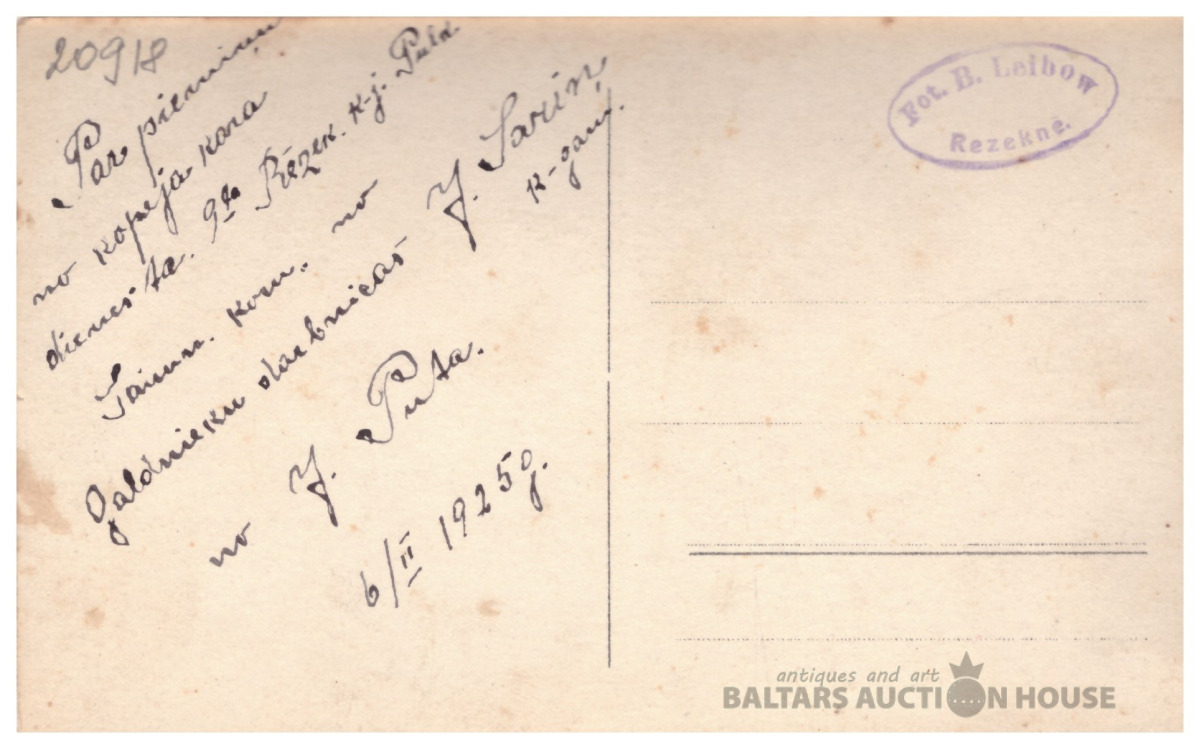 20918
Par piemiņu
no kopeja kara
dienesta. 9ta Rēzek. k-j. Pulk
Saimn. kom. no
Galdnieku darbnicas J. Sarin,
k-gam.
no J. Puta.
6/II 1925 g.
Fot. B. Leibow
Rezekne.
antiques and art
BALTARS AUCTION HOUSE